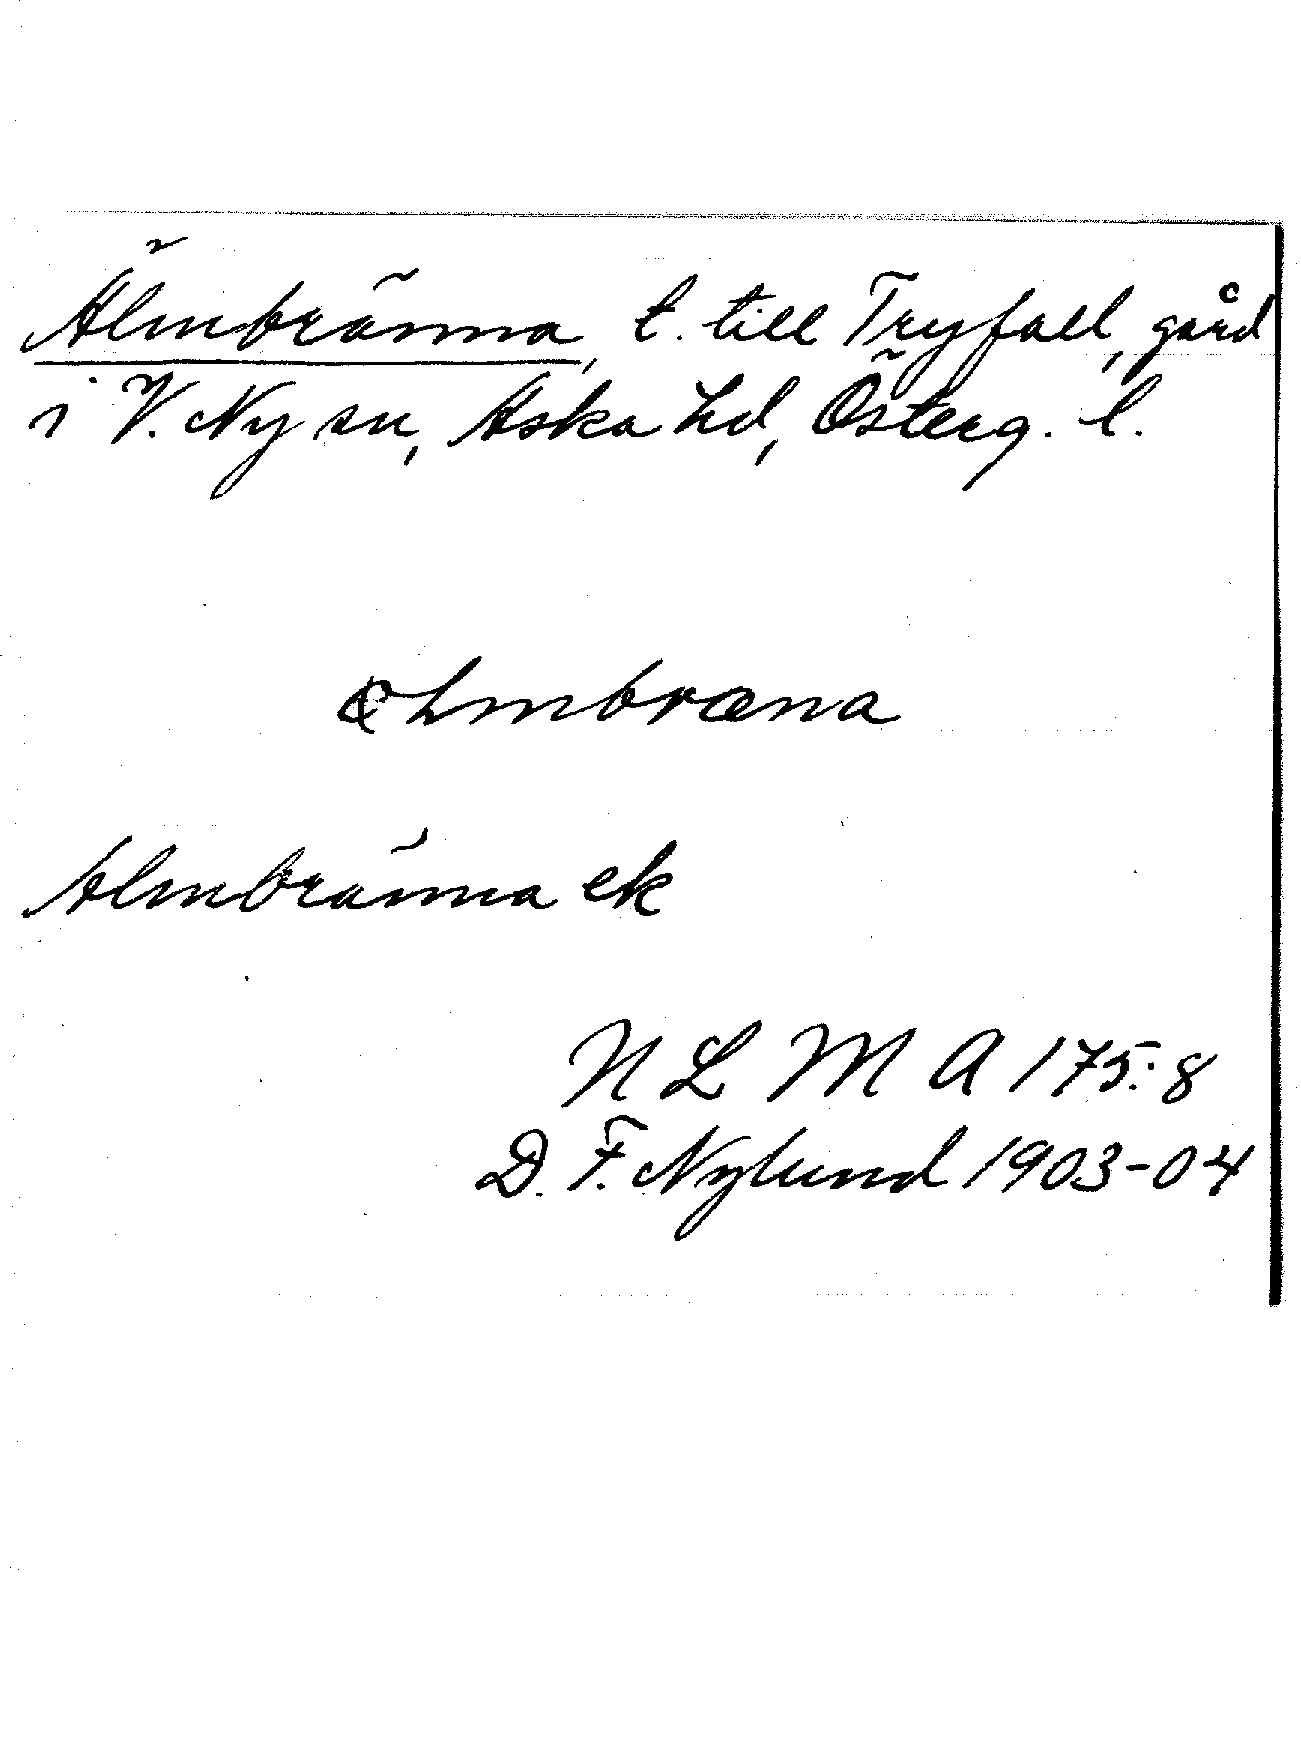 Älmbränna, t. till Tryfall, gård
i V. Ny sn, Aska hd, Österg. l.
Almbränna ek
N L M A 175:8
D. F. Nylund 1903-04